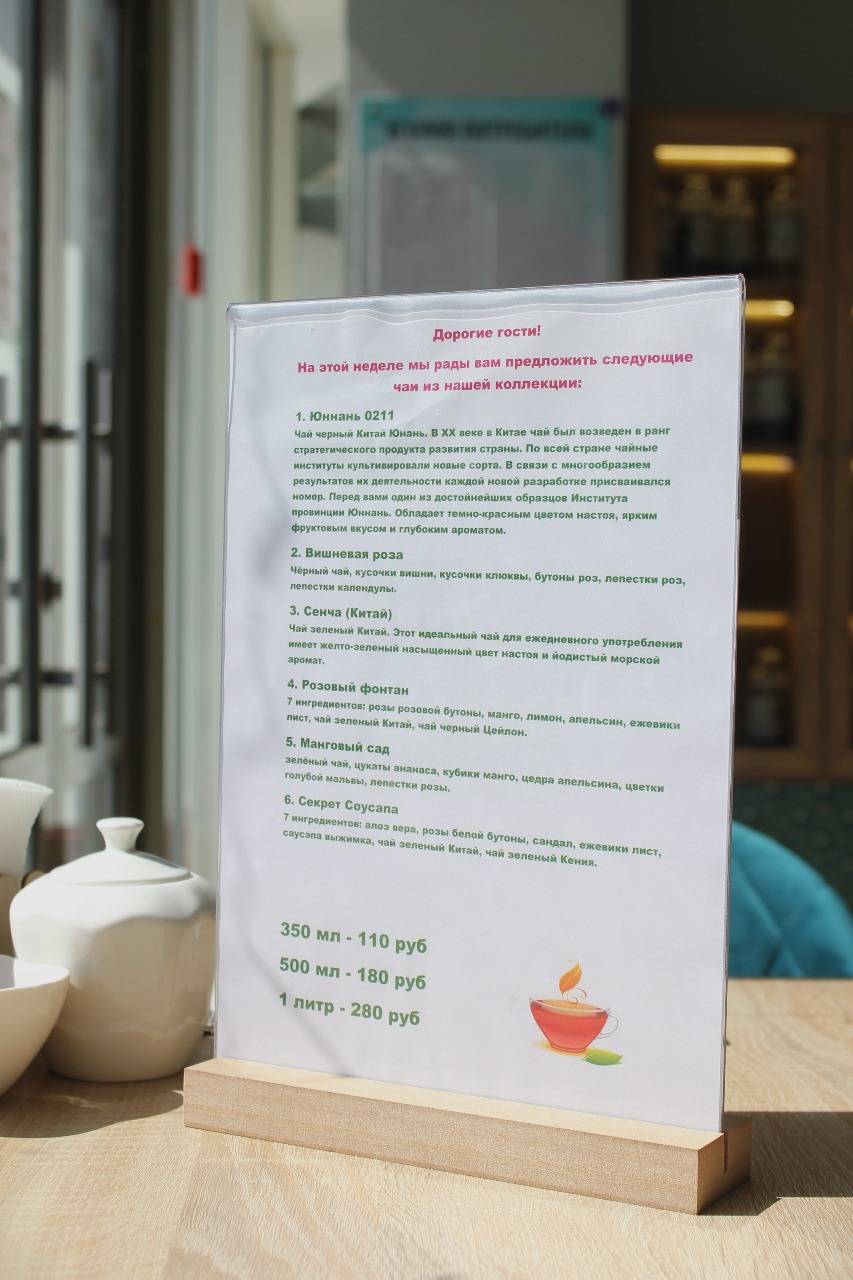 Дорогие гости!
На этой неделе мы рады вам предложить следующие
чаи из нашей коллекции:
1. Юннань 0211
Чай черный Китай Юнань. В ХХ веке в Китае чай был возведен в ранг
стратегического продукта развития страны. По всей стране чайные
институты культивировали новые сорта. В связи с многообразием
результатов их деятельности каждой новой разработке присваивался
номер. Перед вами один из достойнейших образцов Института
провинции Юннань. Обладает темно-красным цветом настоя, ярким
фруктовым вкусом и глубоким ароматом.
2. Вишневая роза
Чёрный чай, кусочки вишни, кусочки клюквы, бутоны роз, лепестки роз,
лепестки календулы.
3. Сенча (Китай)
Чай зеленый Китай. Этот идеальный чай для ежедневного употребления
имеет желто-зеленый насыщенный цвет настоя и йодистый морской
аромат.
4. Розовый фонтан
7 ингредиентов: розы розовой бутоны, манго, лимон, апельсин, ежевики
лист, чай зеленый Китай, чай черный Цейлон.
5. Манговый сад
зелёный чай, цукаты ананаса, кубики манго, цедра апельсина, цветки
голубой мальвы, лепестки розы.
6. Секрет Соусапа
7 ингредиентов: алоэ вера, розы белой бутоны, сандал, ежевики лист,
саусэпа выжимка, чай зеленый Китай, чай зеленый Кения.
350 мл - 110 руб
500 мл - 180 руб
1 литр - 280 руб